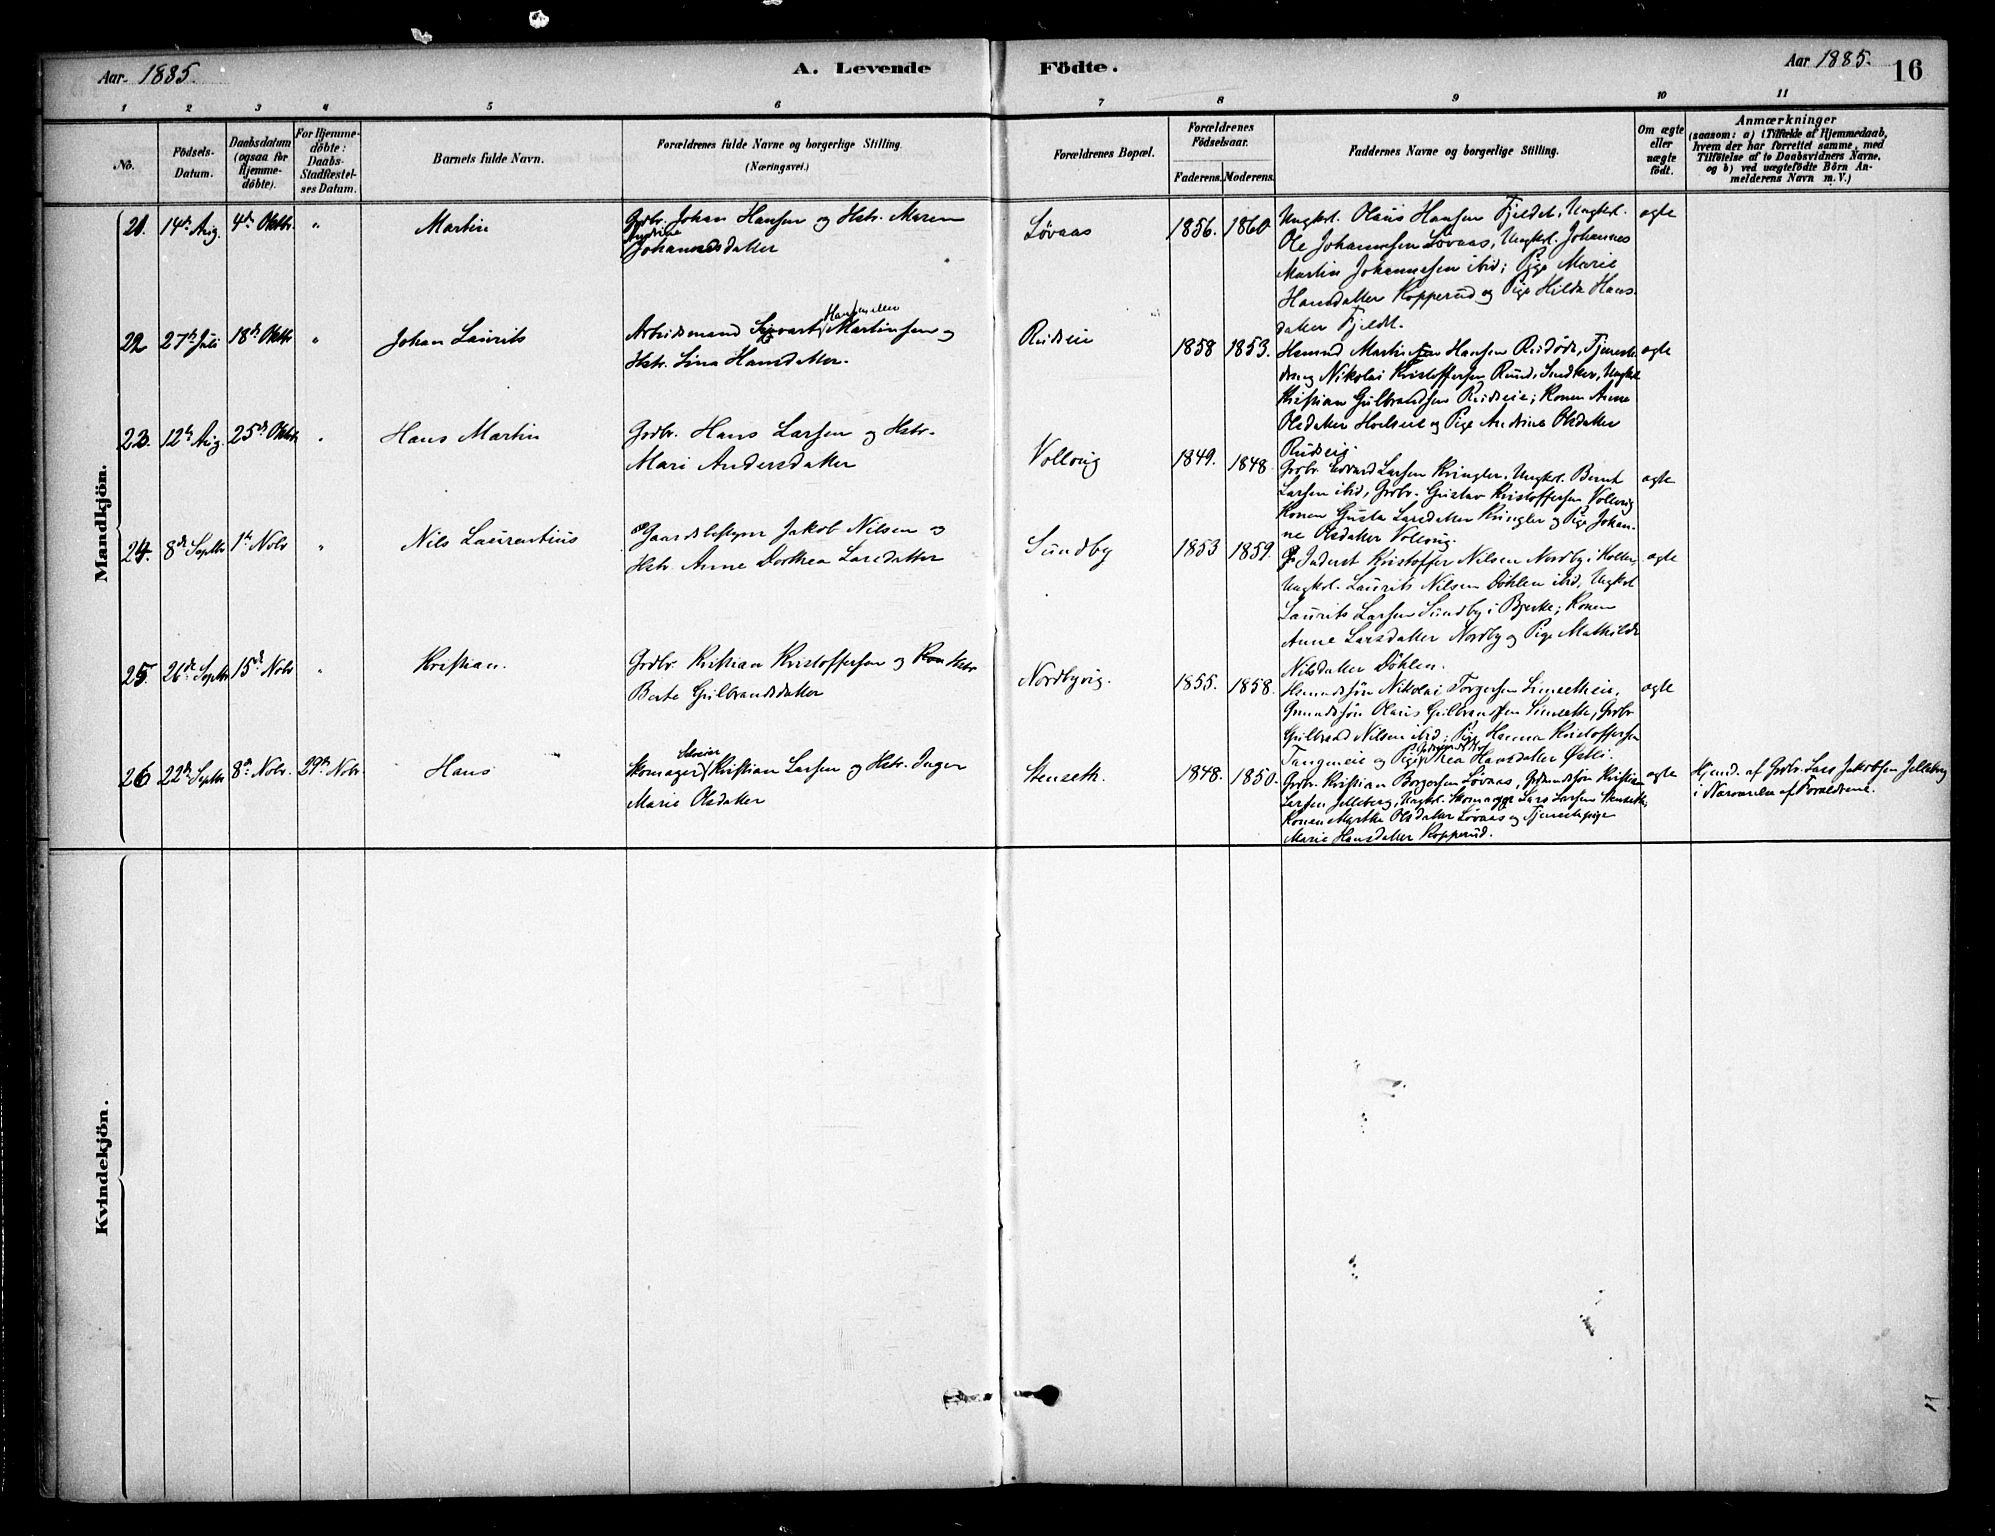 Aar 1885.
A. Levende Födte.
Aar 1885.
16
1 2 3 4 5 6 7 8 9 10 11
No.
Födsels-
Datum.
Daabsdatum
(ogsaa for
Hjemme-
döbte).
For Hjemme-
döbte:
Daabs-
Stadfæstel-
ses Datum.
Barnets fulde Navn.
Forældrenes fulde Navne og borgerlige Stilling
(Næringsvei.)
Forældrenes Bopæl.
Forældrenes
Födselsaar.
Faderens. Moderens.
Faddernes Navne og borgerlige Stilling.
Om ægte
eller
uægte
födt.
Anmærkninger
(saasom: a) i Tilfælde af Hjemmedaab,
hvem der har forrettet samme, med
Tilföielse af to Daabsvidners Navne,
og b) ved uægtefödte Börn An-
melderens Navn m. V.)
Mandkjön.
21. 14de Aug. 4de Oktbr. " Martin
Grdbr. Johan Hansen og Hstr. Maren
Andrine
Johannesdatter
Løvaas 1856. 1860
Ungkal. Olaus Hansen Fjeldet, Ungkal.
Ole Johannesen Løvaas, Ungkal. Johannes
Martin Johannesen ibid; Pige Marie
Hansdatter Kopperud og Pige Hilda Hans-
datter Fjeldt.
ægte
22 27de Juli 18de Oktbr " Johan Laurits
Arbeidsmand Sigvart Martinsen og
Hstr. Lina Hansdatter.
Rudseie 1858 1853.
Hsmnd Martin Hansen Rudøde, Tjeneste
dreng Nikolai Kristoffersen Rud, Snedker, Ungkal
Kristian Gulbrandsen Rudseie; Konen Anne
Olsdatter Hoelseie og Pige Andrine Olsdatter
Rudseie.
ægte
23. 12te Aug. 25de Oktbr " Hans Martin
Grdbr. Hans Larsen og Hstr.
Mari Andersdatter
Vollvig 1849. 1848
Grdbr. Edvard Larsen Kringler, Ungkal. Bernt
Larsen ibid, Grdbr. Gustav Kristoffersen Vollvig
Konen Gusta Larsdatter Kringler og Pige Johan-
ne Olsdatter Vollvig.
ægte
24. 8de Septbr 1te Novbr " Nils Laurentius
Gaardsbestyrer Jakob Nilsen og
Hstr. Anne Dorthea Larsdatter
Sundby 1853 1859.
Inderst Kristoffer Nilsen Nordby i Holter,
Ungkal. Laurits Nilsen Døhlen ibid, Ungkal
Laurits Larsen Sundby i Bjerke; Konen
Anne Larsdatter Nordby og Pige Mathilde
Nilsdatter Döhlen.
ægte
25. 26de Septbr 15de Novbr " Kristian.
Grdbr. Kristian Kristoffersen og Kon Hstr
Berte Gulbrandsdatter
Nordbyvig. 1855. 1858.
Hsmndssøn Nikolai Torgersen Limsetheie,
Grmndssøn Olaus Gulbrandsen Limseth, Grdbr
Gulbrand Nilsen ibid; Pige Hanna Kristoffersen
Tangeneie og Pige Thea Hansdatter Østli.
ægte
26 22de Septbr 8de Novbr. 29de Novbr. Hans
Selveier
Skomager Kristian Larsen og Hstr. Inger
Marie Olsdatter
Stenseth. 1848. 1850.
Grdbr. Kristian Borgersen Løvaas, Grdmndssøn Kristian
Larsen Jelleberg, Ungkal. Skomager Lars Larsen Stenseth,
Konen Marthe Olsdatter Løvaas og Tjenestepige
Marie Hansdatter Kopperud.
ægte
Hjmd. af Grdbr. Lars Jakobsen Jelleberg
i Nærværelse af Forældrene.
Kvindekjön.